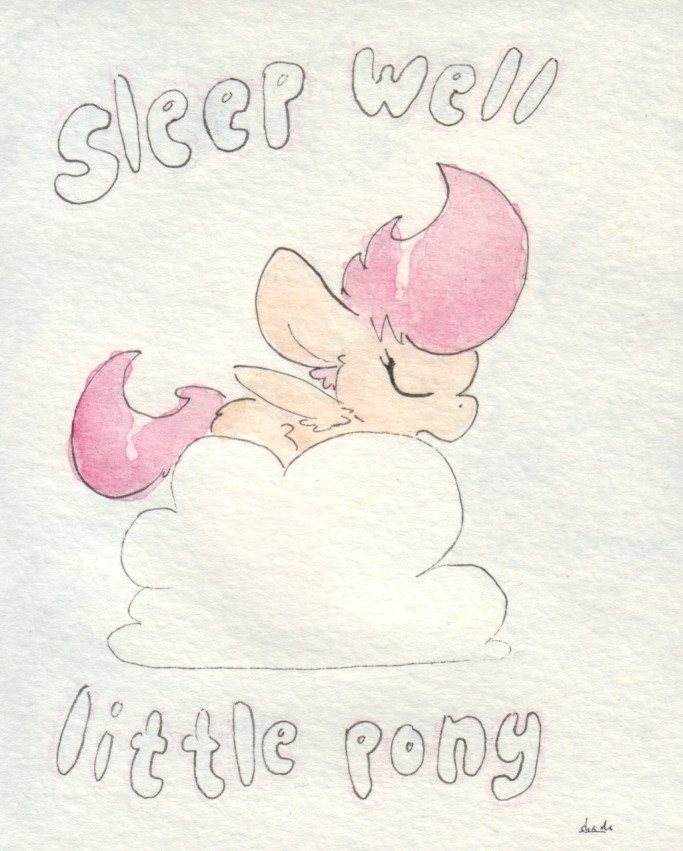 sleep well
little pony